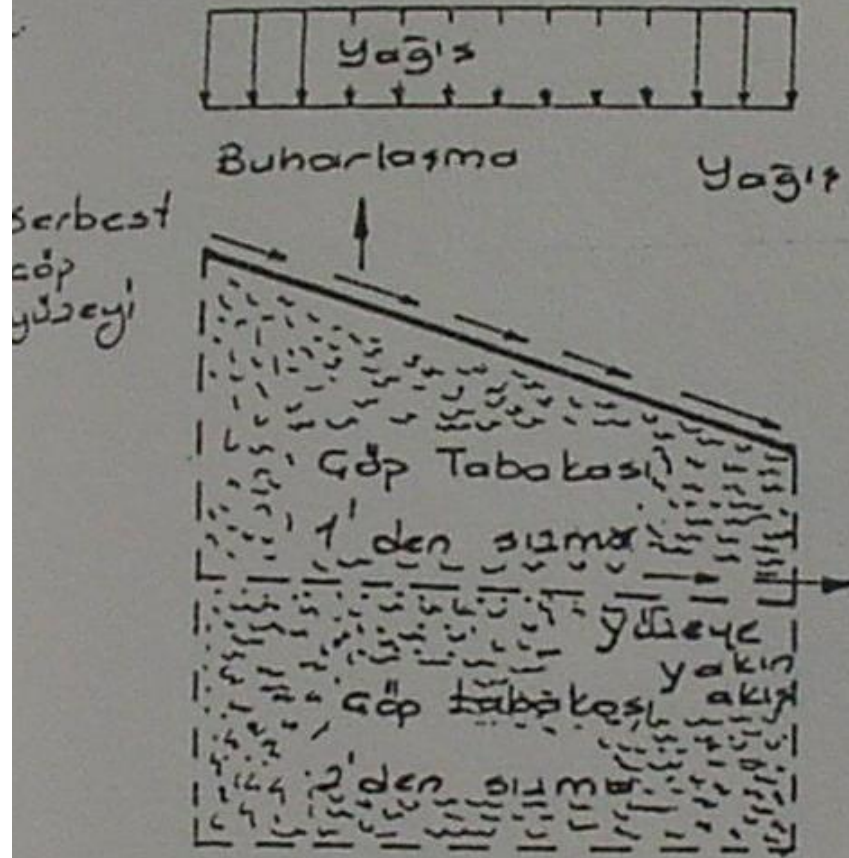 Yağış
Buharlaşma
Yağış
Serbest
çöp
yüzeyi
Çöp Tabakası
1'den sızma
yüzeye
yakın
akış
Çöp tabakası
2'den sızma